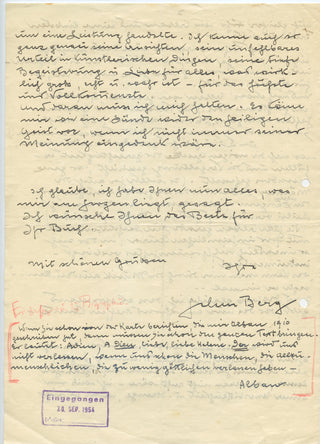 um eine Leitung handelte. Ich kenne auch so
ganz genau seine Ansichten, sein unfehlbares
Urteil in künstlerischen Dingen, seine tiefe
Begeisterung u. Liebe für alles, was wirk-
lich groß, echt u. wahr ist - für das Höchste
und Vollkommenste.
und daran muss ich mich halten. Es käme
mir vor eine Sünde wider den heiligen
Geist vor, wenn ich nicht immer seiner
Meinung eingedenk wäre.
Ich glaube, ich habe Ihnen nun alles, was
mir am Herzen liegt, gesagt.
Ich wünsche Ihnen das Beste für
Ihr Buch.
Mit schönen Grüssen
Ihre
Helene Berg
Wenn Sie schon von der Karte berichten, die mir Alban 1910
geschrieben hat, dann müssen Sie schon den ganzen Text bringen.
Er lautet: Adieu, A Dieu, liebe, liebe Helene. Der wird uns
nicht verlassen, wenn uns schon die Menschen, die allzu-
menschlichen, die zu wenig göttlichen verlassen haben -
Alban
Eingegangen
20. SEP. 1954